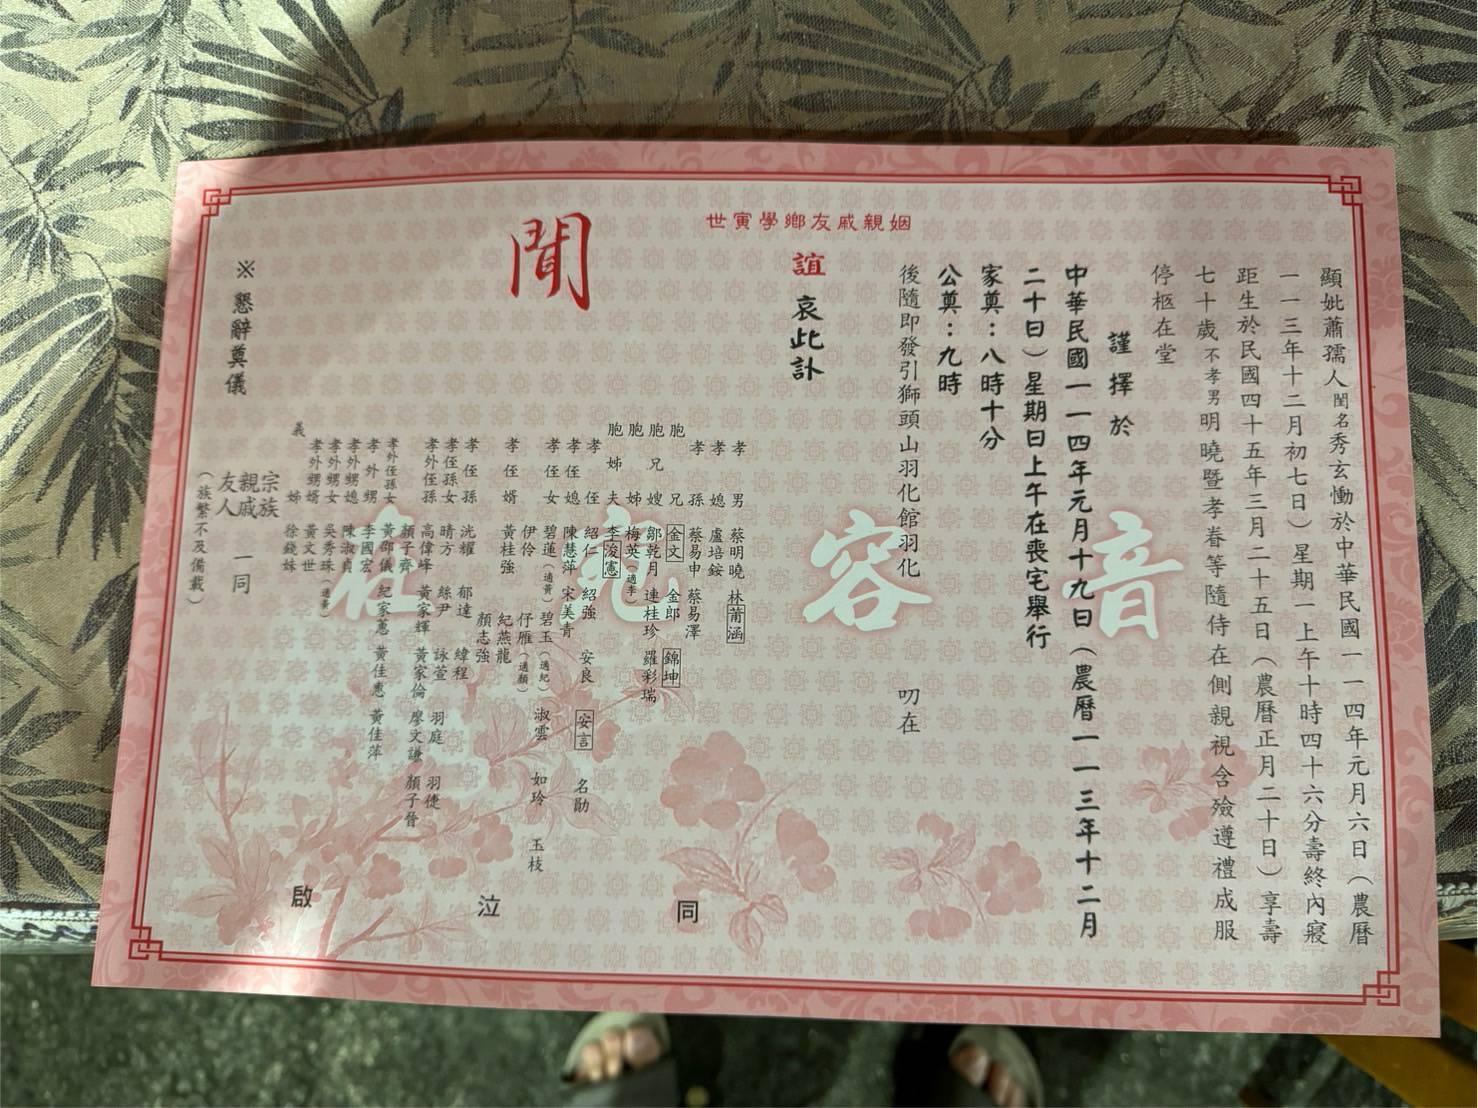 顯妣蕭孺人閨名秀玄慟於中華民國一一四年元月六日（農曆
一一三年十二月初七日）星期一上午十時四十六分壽終內寢
距生於民國四十五年三月二十五日（農曆正月二十日）享壽
七十歲不孝男明曉暨孝眷等隨侍在側親視含殮遵禮成服
停柩在堂
謹擇於
中華民國一一四年元月十九日（農曆一一三年十二月
二十日）星期日上午在喪宅舉行
家奠：八時十分
公奠：九時
後隨即發引獅頭山羽化館羽化 叨在
姻親戚友鄉學寅世
誼 哀此訃
聞
音容宛在
孝男 蔡明曉 林莆涵
孝媳 盧培銨
孝孫 蔡易申 蔡易澤
胞兄 金文 金郎 錦坤
胞兄嫂 鄒乾月 連桂珍 羅彩瑞
胞姊 梅英（適李）
胞姊夫 李浚憲
孝侄 紹仁 紹強 安良 安言 名勛
孝侄媳 陳慧萍 宋美青
孝侄女 碧蓮（適黃） 碧玉（適紀） 淑雲 如玲 玉枝
伊伶 伃雁（適顏）
孝侄婿 黃桂強 紀燕龍
顏志強
孝侄孫 洸耀 郁達 緯程
孝侄孫女 晴方 絲尹 詠萱 羽庭 羽倢
孝外侄孫 高偉峰 黃家輝 黃家倫 廖文謙 顏子晉
顏子齊
孝外侄孫女 黃邵儀 紀家蕙 黃佳惠 黃佳萍
孝外甥 李國宏
孝外甥媳 陳淑貞
孝外甥女 吳秀珠（適黃）
孝外甥婿 黃文世
義姊 徐錢妹
宗族
親戚 一同
友人
（族繁不及備載）
同泣啟
※懇辭奠儀